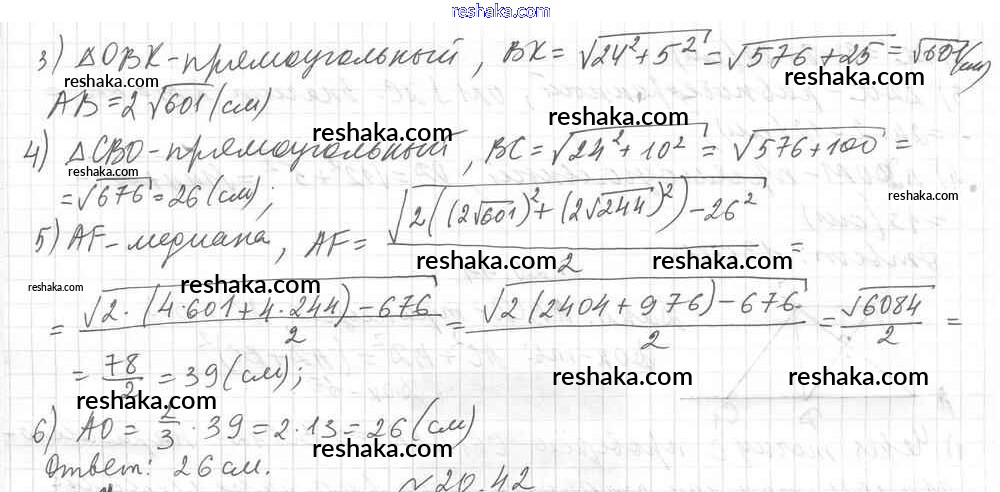 reshaka.com
3) △OBK - прямоугольный, BK = √(24² + 5²) = √(576 + 25) = √601 (см)
reshaka.com
reshaka.com
AB = 2√601 (см)
reshaka.com
4) △CBO - прямоугольный, BC = √(24² + 10²) = √(576 + 100) =
reshaka.com
= √676 = 26 (см);
reshaka.com
5) AF - медиана, AF = √(2((2√601)² + (2√244)²) - 26²) / 2 =
reshaka.com
reshaka.com
reshaka.com
= √(2·(4·601 + 4·244) - 676) / 2 = √(2(2404 + 976) - 676) / 2 = √6084 / 2 =
= 78/2 = 39 (см);
reshaka.com
reshaka.com
reshaka.com
6) AO = 2/3 · 39 = 2·13 = 26 (см)
reshaka.com
Ответ: 26 см.
№20.42